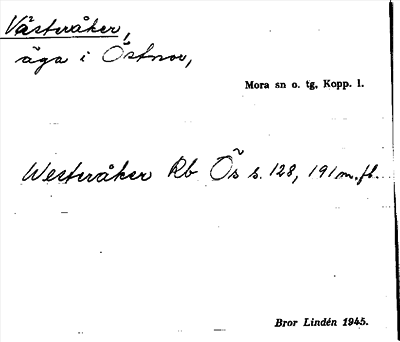 Västeråker,
äga i Östnor,
Mora sn o. tg, Kopp. l.
Westeråker Rb Ös s. 128, 191 m. fl.
Bror Lindén 1945.